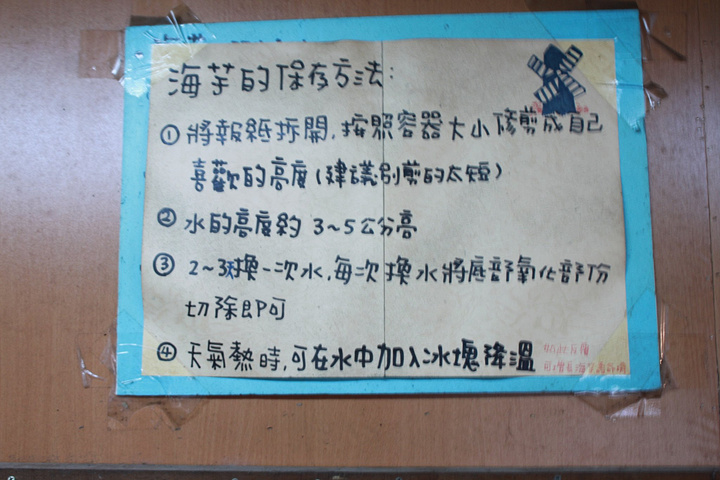 海芋的保存方法:
①將報紙拆開,按照容器大小修剪成自己
喜歡的高度(建議別剪的太短)
②水的高度約 3~5公分高
③2~3天換一次水,每次換水將底部氧化部份
切除即可
④天氣熱時,可在水中加入冰塊降溫